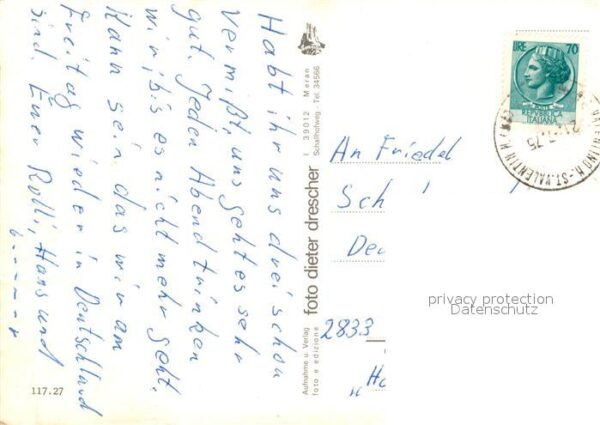 Habt ihr uns drei schon
vermißt, uns geht es sehr
gut. Jeden Abend trinken
wir, bis es nicht mehr geht.
Kann sein, das wir am
Freitag wieder in Deutschland
sind. Euer Rolli, Hans und
117.27
Aufnahme u. Verlag
foto e edizione
foto dieter drescher
I 39012 Meran
Schallhofweg - Tel. 34566
LIRE 70
REPUBBLICA
ITALIANA
VALENTINO M. - ST. VALENTIN H
An Friedel
Sch
De
2833
"Ho
privacy protection
Datenschutz